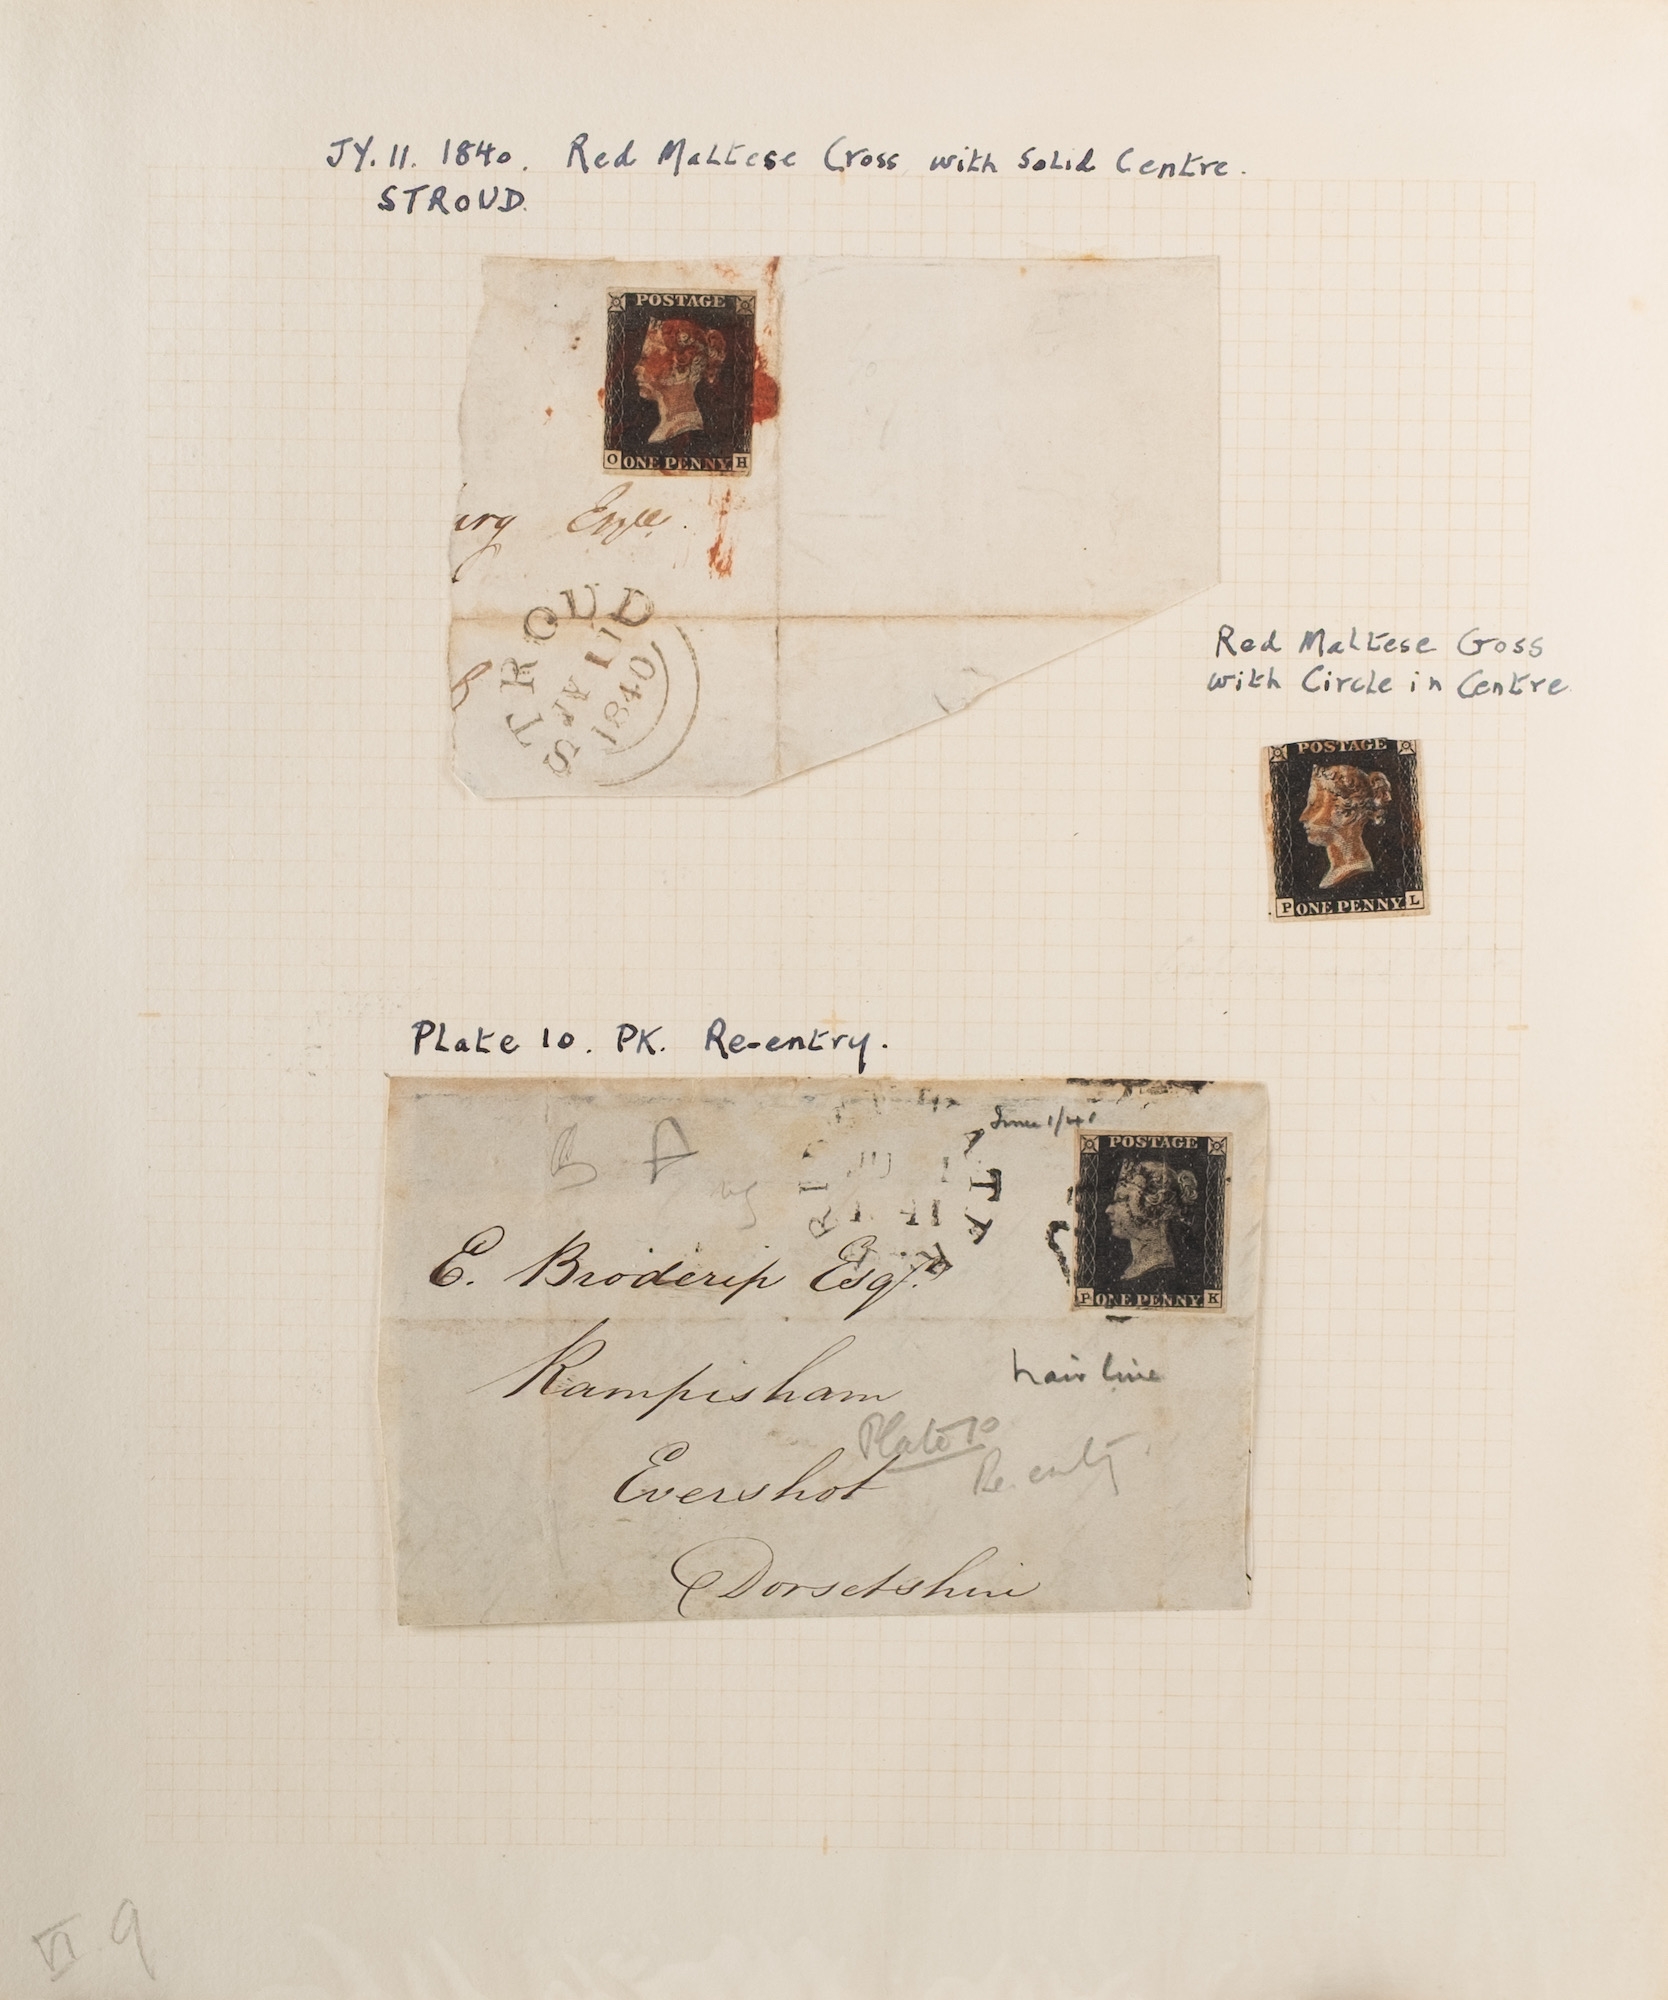 JY. 11. 1840. Red Maltese Cross with Solid Centre.
STROUD.
POSTAGE
O ONE PENNY H
STROUD
JY 11
1840
Red Maltese Cross
with Circle in Centre
POSTAGE
P ONE PENNY L
Plate 10. PK. Re-entry.
June 1/41
POSTAGE
P ONE PENNY K
E. Broderip Esqr.
Rampisham
hair line
Plate 10
Re-entry
Evershot
Dorsetshire
VI 9